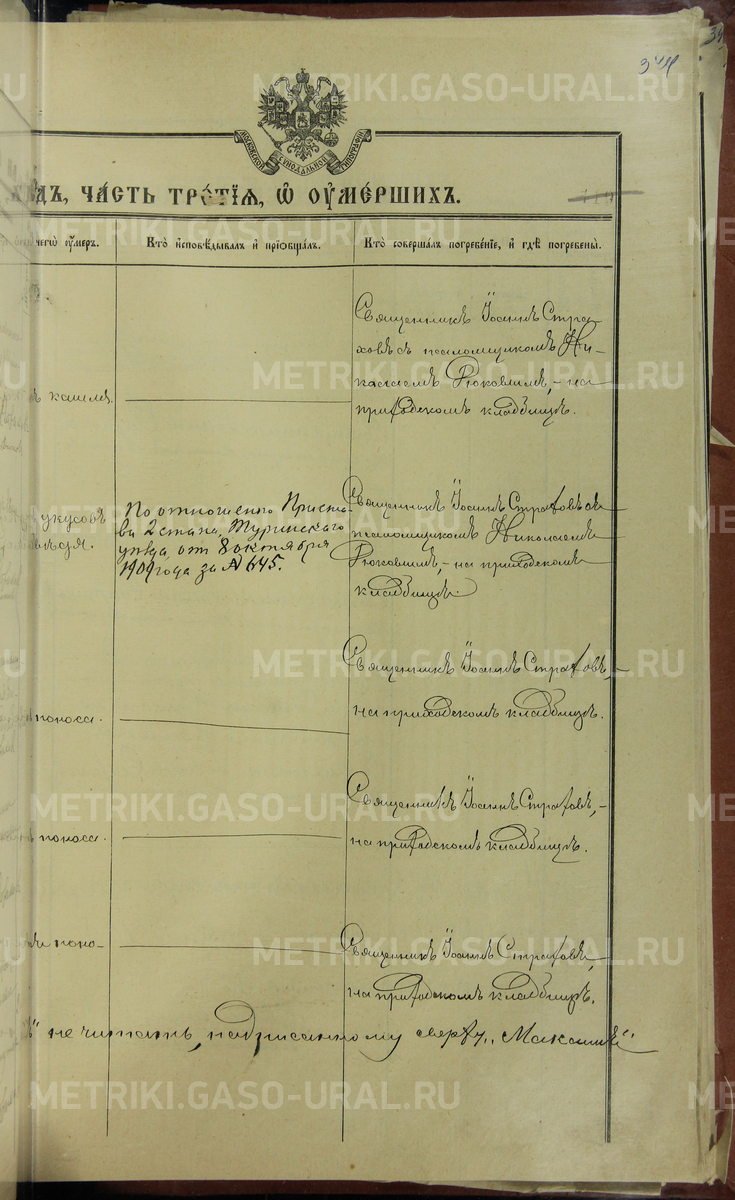 METRIKI.GASO-URAL.RU
344
МОСКОВСКОЙ СѴНОДАЛЬНОЙ ТИПОГРАФІИ
ЧА́СТЬ ТРЕ́ТІѦ, Ѡ҆ ОУ҆МЕ́РШИХЪ.
чегѡ̀ оу҆́меръ.
Кто̀ и҆сповѣ́дывалъ и҆ прїѡбща́лъ.
Кто̀ соверша́лъ погребе́нїе, и҆ гдѣ̀ погребены̀.
кашля.
Священникъ Іоаннъ Стра-
ховъ съ псаломщикомъ Ни-
колаемъ Рюковымъ, - на
приходскомъ кладбищѣ.
укусовъ
По отношенію Приста-
ва 2 стана, Туринскаго
уѣзда, от 8 октября
1909 года за № 645.
Священникъ Іоаннъ Страховъ съ
псаломщикомъ Николаемъ
Рюковымъ, - на приходскомъ
кладбищѣ.
поноса.
Священникъ Іоаннъ Страховъ, -
на приходскомъ кладбищѣ.
поноса.
Священникъ Іоаннъ Страховъ, -
на приходскомъ кладбищѣ.
поно-
Священникъ Іоаннъ Страховъ,
на приходскомъ кладбищѣ.
не читать, надписанному сверху